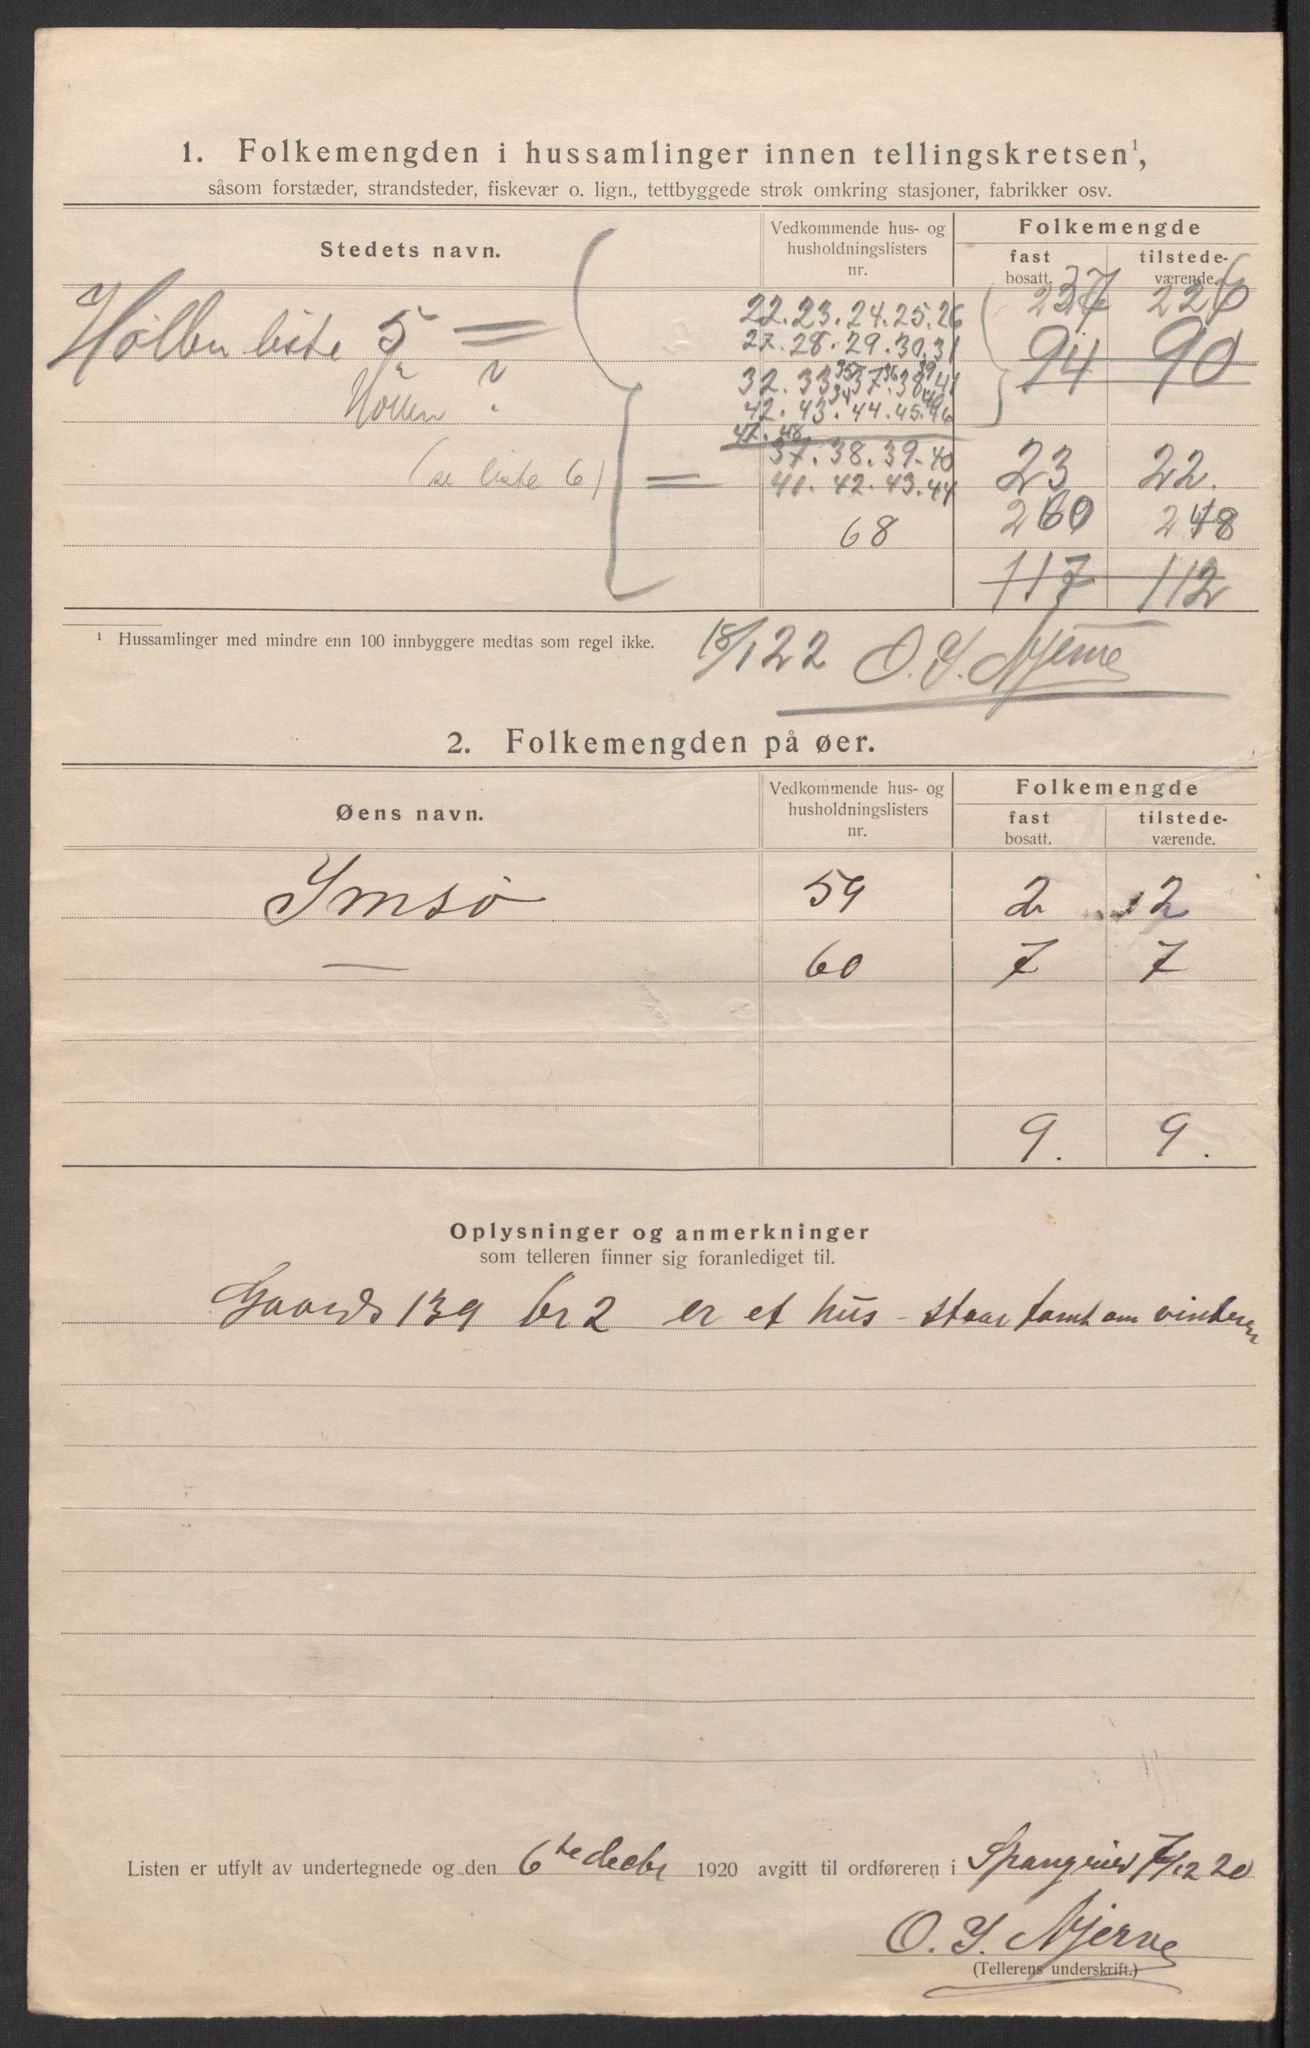 1. Folkemengden i hussamlinger innen tellingskretsen¹,
såsom forstæder, strandsteder, fiskevær o. lign., tettbyggede strøk omkring stasjoner, fabrikker osv.
Stedets navn.
Vedkommende hus- og husholdningslisters nr.
Folkemengde
fast bosatt.
tilstede-værende.
22. 23. 24. 25. 26 237 226
Höllen liste 5 =
27. 28. 29. 30. 31 94 90
32. 33 35 37. 36 38. 39 41
Höllen ?
42. 43. 34 44. 45. 40 46
47. 48
37. 38. 39. 40 23 22.
(se liste 6) =
41. 42. 43. 44
68 260 248
117 112
¹ Hussamlinger med mindre enn 100 innbyggere medtas som regel ikke.
18/1 22 O. Y. Njerve
2. Folkemengden på øer.
Øens navn.
Vedkommende hus- og husholdningslisters nr.
Folkemengde
fast bosatt.
tilstede-værende.
Imsø 59 2 2
— 60 7 7
9. 9.
Oplysninger og anmerkninger
som telleren finner sig foranlediget til.
139 br 2 er et hus - staar tomt om vinteren
Listen er utfylt av undertegnede og den 6te decbr 1920 avgitt til ordføreren i Spangereid 7/12 20
O. Y. Njerve
(Tellerens underskrift.)